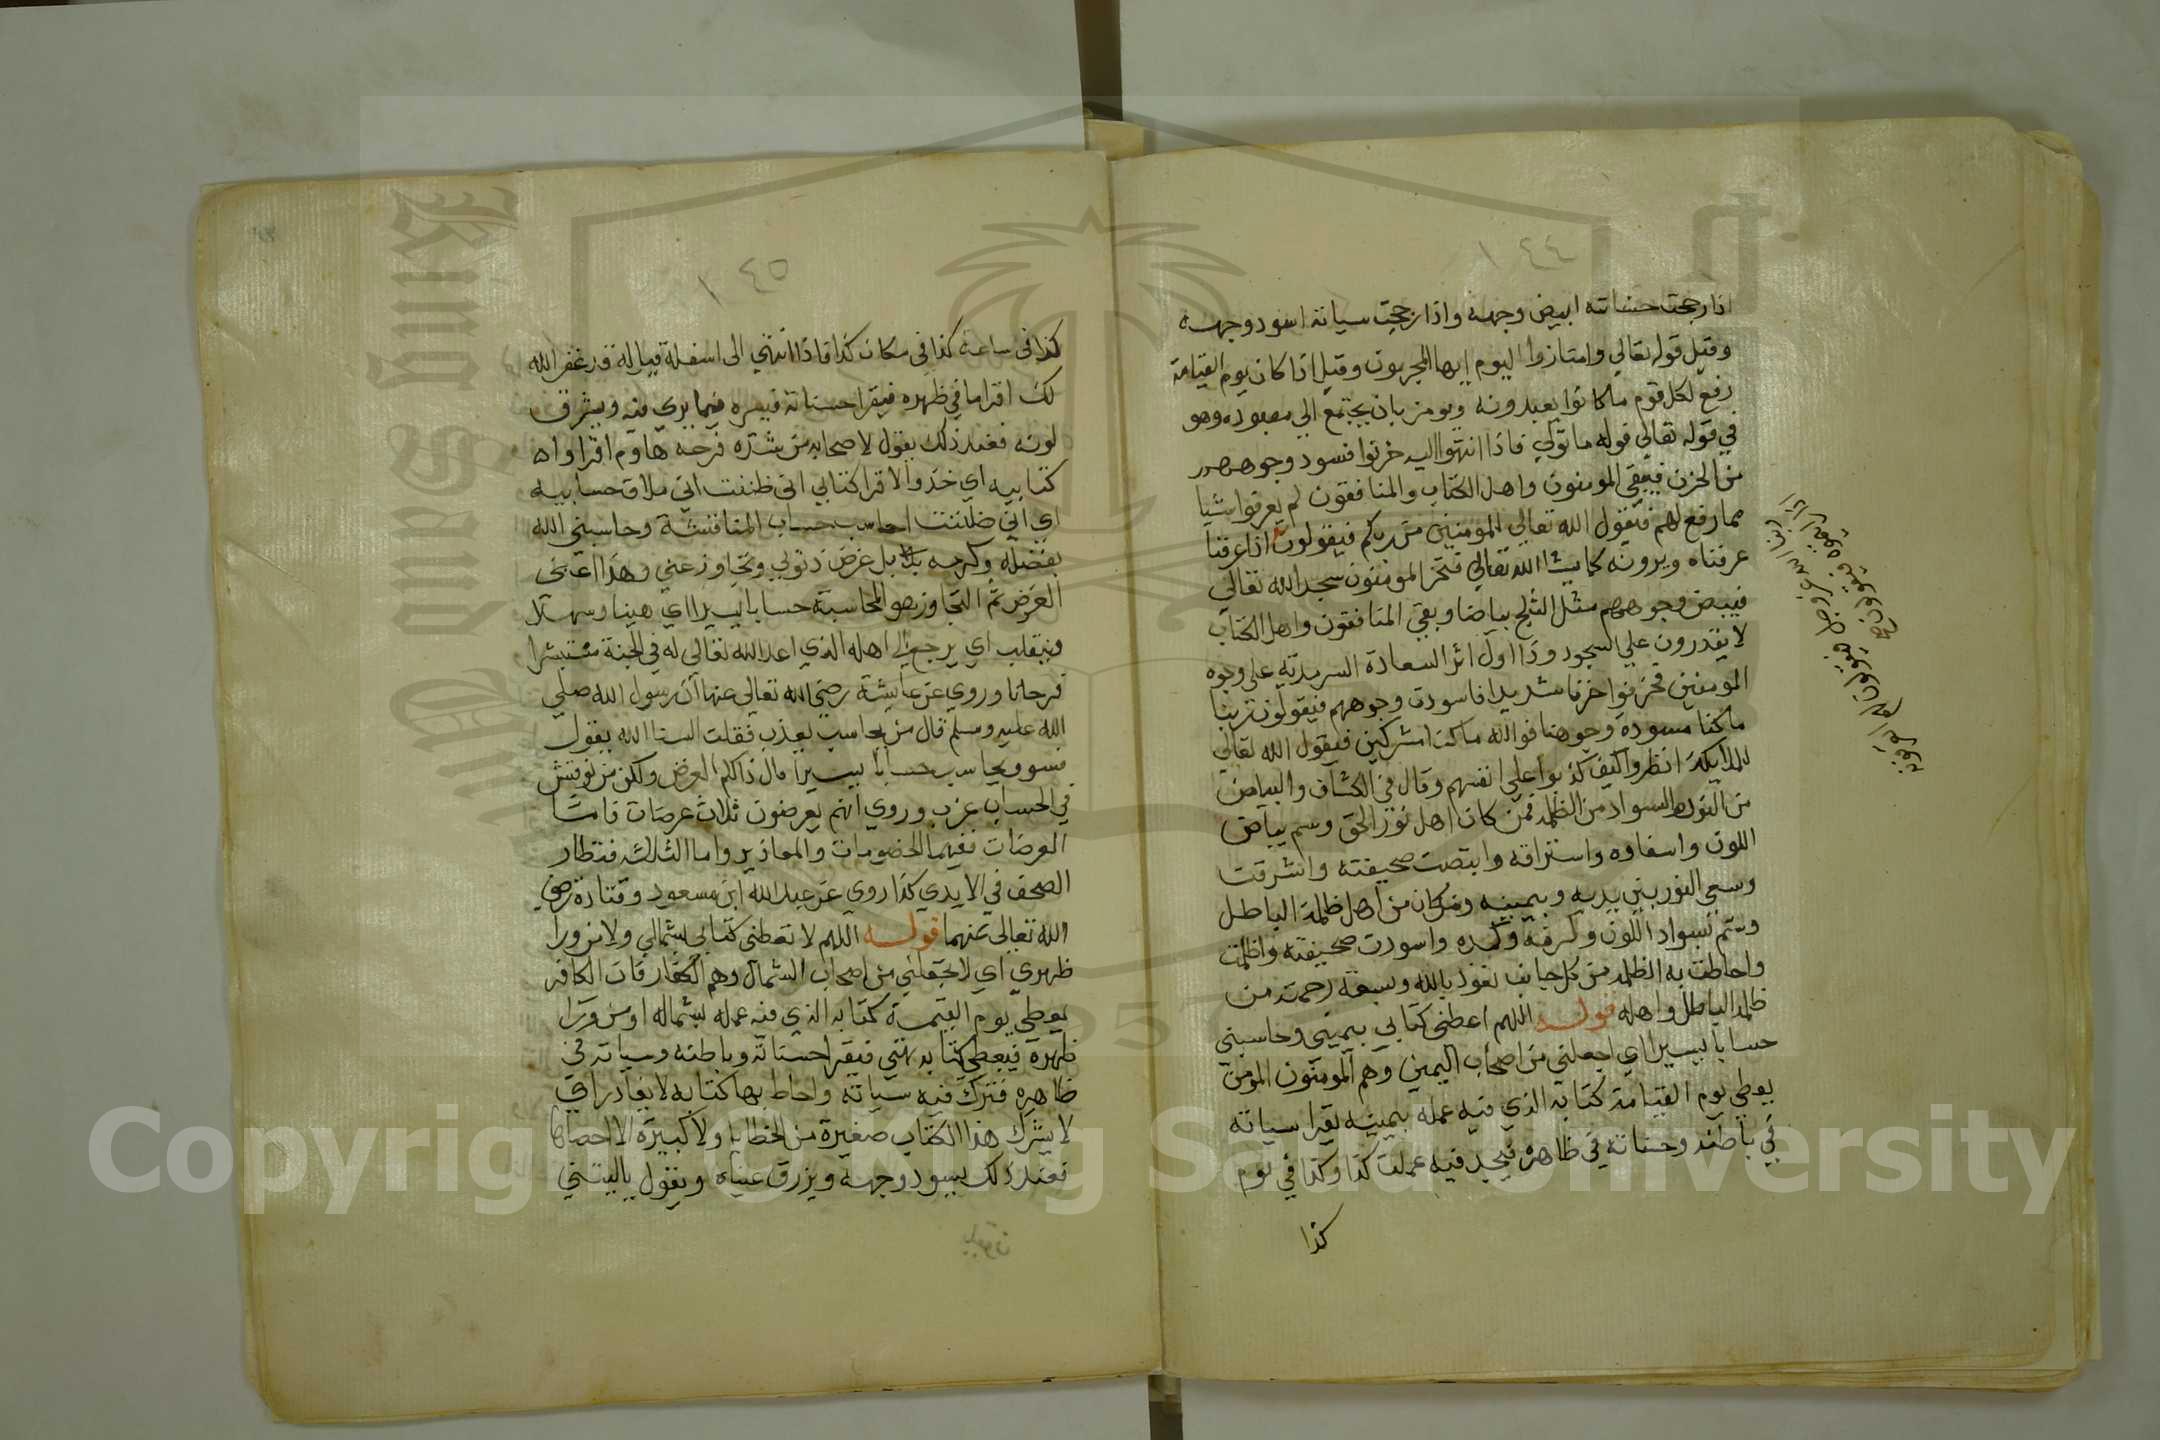 ١٤٤
اذا رجحت حسناته ابيض وجهه واذا رجحت سياته اسود وجهه
وقيل قوله تعالي وامتازوا اليوم ايها المجرمون وقيل اذا كان يوم القيامة
رفع لكل قوم ما كانوا يعبدونه ويومر بان يجتمع الي معبوده وهو
في قوله تعالي نوله ما تولي فاذا انتهوا اليه حزنوا فتسود وجوههم
من الحزن فيبقي المومنون واهل الكتاب والمنافقون لم يعرفوا شيا
مما رفع لهم فيقول الله تعالي للمومنين من ربكم فيقولون اذا عرفنا
عرفناه ويرونه كما يشا الله تعالي فتخر المومنون سجدا لله تعالي
فيبيض وجوههم مثل الثلج بياضا وبقي المنافقون واهل الكتاب
لا يقدرون علي السجود وذا اول اثر السعادة السرمدية علي وجوه
المومنين فحزنوا حزنا شديدا فاسودت وجوههم فيقولون ربنا
ما كنا مسودة وجوهنا فوالله ما كنا مشركين فيقول الله تعالي
للملايكة انظروا كيف كذبوا علي انفسهم وقال في الكشاف والبياض
من النور والسواد من الظلمة فمن كان اهل نور الحق وسم ببياض
اللون واسفاره واستراقه وابيضت صحيفته وانشرقت
وسعي النور بين يديه وبيمينه ومن كان من اهل ظلمة الباطل
وسم بسواد اللون وكرفه وكمده واسودت صحيفته واظلمت
واحاطت به الظلمة من كل جانب نعوذ بالله وبسعة رحمته من
ظلمة الباطل واهله قوله اللهم اعطني كتابي بيميني وحاسبني
حسابا يسيرا اي اجعلني من اصحاب اليمين وهم المومنون المومن
يعطي يوم القيامة كتابه الذي فيه عمله بيمينه يقرا سياته
في باطنه وحسناته في ظاهره فيجد فيه عملت كذا وكذا في يوم
كذا
١٤٥
كذا في ساعة كذا في مكان كذا فاذا انتهي الي اسفله قيل له قد غفر الله
لك اقرا ما في ظهره فيقرا حسناته فيسره فيما يري فيه ويشرق
لونه فعند ذلك يقول لاصحابه من شدة فرحه هاوم اقراوا
كتابيه اي خذوا اقرا كتابي اني ظننت اني ملاق حسابيه
اي اني ظننت احاسب حساب المناقشة وحاسبني الله
بفضله وكرمه بل عرض ذنوبي وتجاوز عني وهذا اعني
العرض ثم التجاوز هو المحاسبة حسابا يسيرا اي هينا وسهلا
وينقلب اي يرجع الي اهله الذي اعد الله تعالي له في الجنة مستبشرا
فرحانا وروي عن عايشة رضي الله تعالي عنها ان رسول الله صلي
الله عليه وسلم قال من يحاسب يعذب فقلت السنا الله يقول
فسوف يحاسب حسابا يسيرا قال ذلكم العرض ولكن من نوقش
في الحساب عذب وروي انهم يعرضون ثلاث عرضات فاما
العرضات ففيها الخصومات والمعاذير واما الثالث فتطار
الصحف في الايدي كذا روي عن عبد الله ابن مسعود وقتادة رضي
الله تعالي عنهما قوله اللهم لا تعطني كتابي بشمالي ولا من ورا
ظهري اي لا تجعلني من اصحاب الشمال وهم الكفار فان الكافر
يعطي يوم القيمة كتابه الذي فيه عمله بشماله او من ورا
ظهره فيعطي كتابه فيقرا حسناته وباطنه وسياته في
ظاهره فترك فيه سياته واحاط بها كتابه لا يغادر اي
لا يترك هذا الكتاب صغيرة من الخطايا ولا كبيرة الا احصاها
فعند ذلك يسود وجهه ويزرق عيناه ويقول ياليتني
King Saud University
1957
Copyright © King Saud University